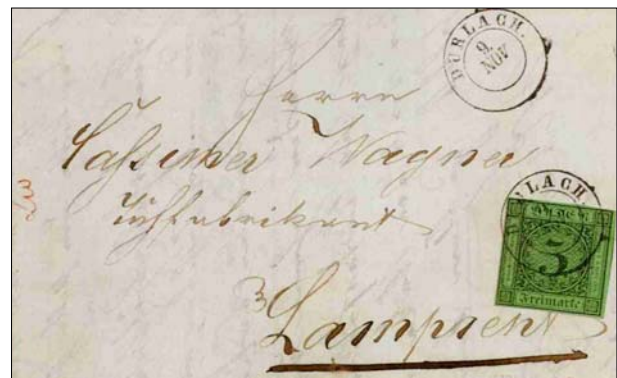 DURLACH.
9.
NOV
Herrn
Cassimer Wagner
Tuchfabrikant
RLACH
3
Freimarke
3
Lamprecht